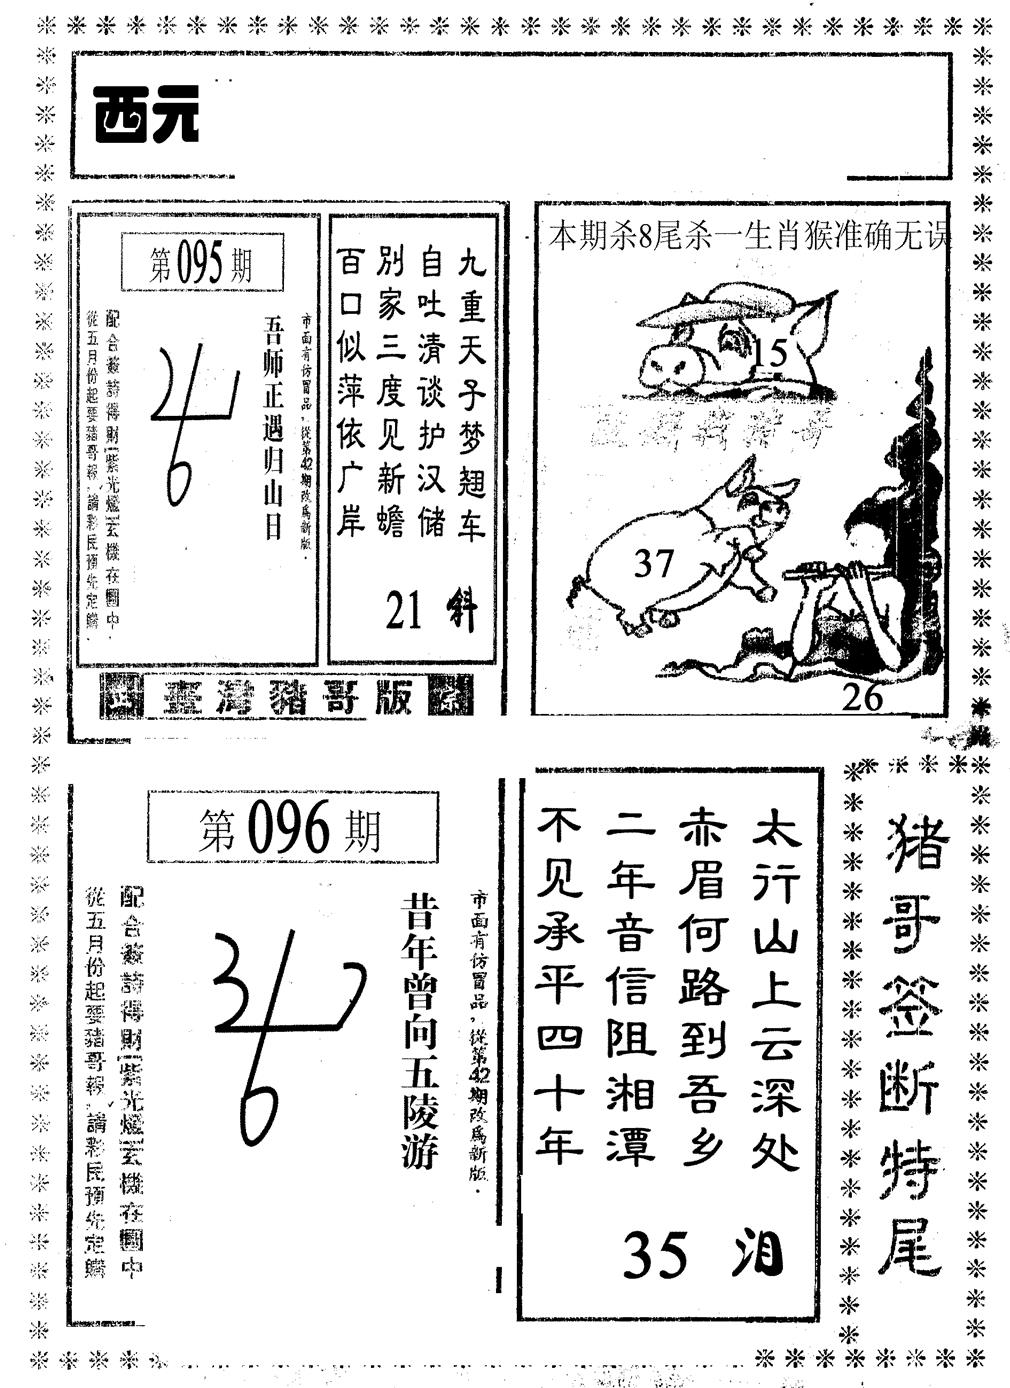 西元
第095期
市面有仿冒品，從第42期改爲新版．
吾师正遇归山日
配合簽詩得財紫光燈玄機在圖中．
從五月份起要豬哥報，請彩民預先定購．
九重天子梦翘车
自吐清谈护汉储
别家三度见新蟾
百口似萍依广岸
21 斜
臺灣豬哥版
本期杀8尾杀一生肖猴准确无误
15
37
26
第096期
市面有仿冒品，從第42期改爲新版．
昔年曾向五陵游
配合簽詩得財紫光燈玄機在圖中
從五月份起要豬哥報，請彩民預先定購
太行山上云深处
赤眉何路到吾乡
二年音信阻湘潭
不见承平四十年
35 泪
猪哥签断特尾